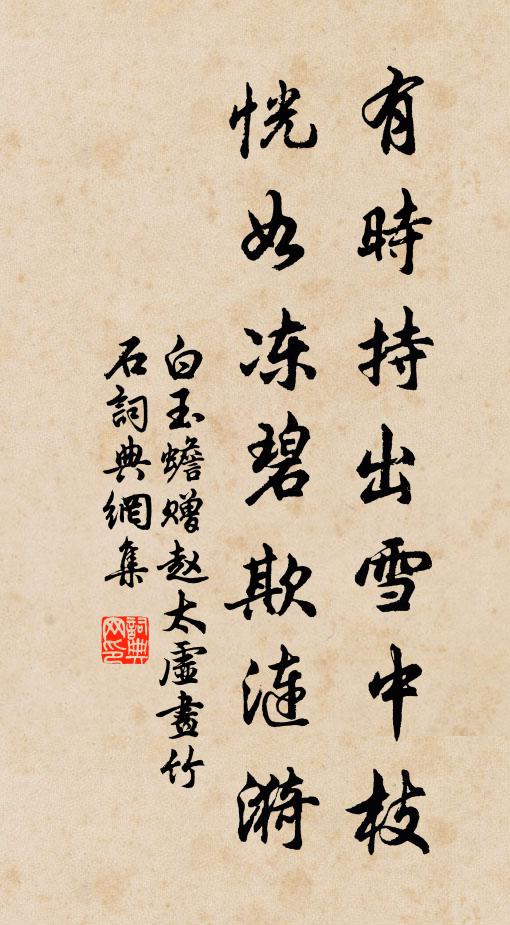 有時持出雪中枝
恍如冻碧欺涟漪
白玉蟾赠赵太虚畫竹
石詞典網集
詞典网印